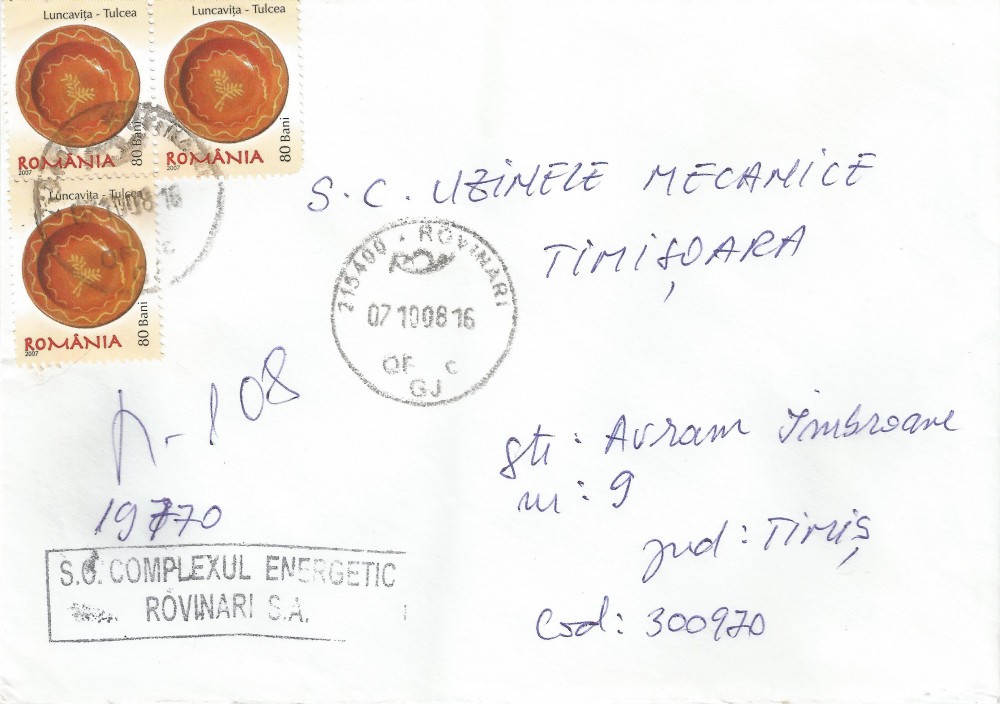 Luncavița - Tulcea
80 Bani
ROMÂNIA
2007
Luncavița - Tulcea
80 Bani
ROMÂNIA
2007
Luncavița - Tulcea
80 Bani
ROMÂNIA
2007
S.C. UZINELE MECANICE
TIMIȘOARA
215400 - ROVINARI
07 10 08 16
OF c
GJ
R-108
19770
S.C. COMPLEXUL ENERGETIC
ROVINARI S.A.
Str: Avram Imbroane
nr: 9
jud: TIMIȘ
Cod: 300970